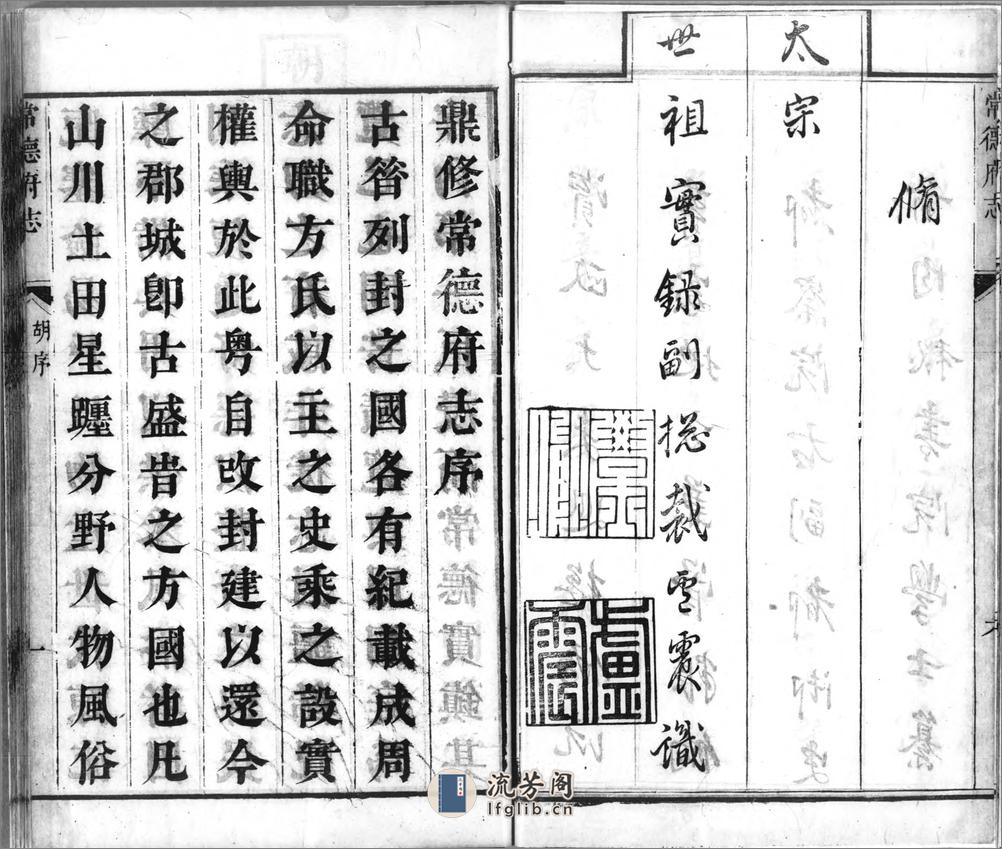 常德府志
脩
太宗
世祖實録副揔裁雲震識
盧震
鼎修常德府志序
古昝列封之國各有紀載成周
命職方氏以主之史乘之設實
權輿於此粤自改封建以還今
之郡城卽古盛昔之方國也凡
山川土田星躔分野人物風俗
常德府志
胡序
一
流芳阁
lfglib.cn